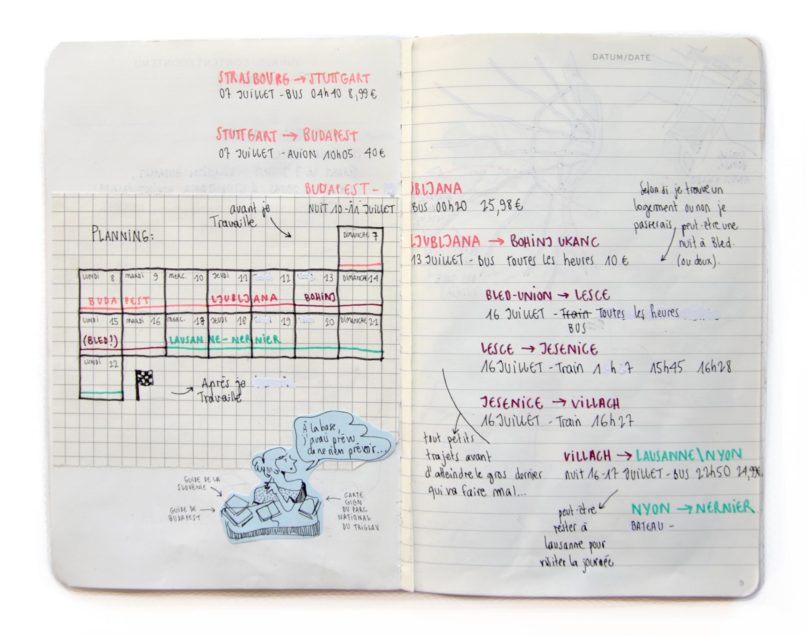 STRASBOURG → STUTTGART
07 JUILLET - BUS 04h10 8,99€
STUTTGART → BUDAPEST
07 JUILLET - AVION 10h05 40€
BUDAPEST - LJUBLJANA
NUIT 10-11 JUILLET BUS 00h20 25,98€
avant je
Travaille
PLANNING:
DIMANCHE 7
LUNDI 8 MARDI 9 MERC. 10 JEUDI 11 12 13 DIMANCHE 14
BUDAPEST LJUBLJANA BOHINJ
LUNDI 15 MARDI 16 MERC. 17 JEUDI 18 19 20 DIMANCHE 21
(BLED?) LAUSANNE-NERNIER
LUNDI 22
Après je
Travaille
À la base,
j'avais prévu
de ne rien prévoir...
GUIDE DE LA
SLOVÉNIE
GUIDE DE
BUDAPEST
CARTE
IGN
DU PARC
NATIONAL
DU TRIGLAV
DATUM/DATE
Selon si je trouve un
logement ou non je
passerais peut-être une
nuit à Bled
(ou deux).
LJUBLJANA → BOHINJ UKANC
13 JUILLET - BUS Toutes les heures 10€
BLED-UNION → LESCE
16 JUILLET - Train Toutes les heures
BUS
LESCE → JESENICE
16 JUILLET - Train 15h45 16h28
JESENICE → VILLACH
16 JUILLET - Train 16h27
tout petits
trajets avant
d'atteindre le gros dernier
qui va faire mal...
VILLACH → LAUSANNE\NYON
nuit 16-17 JUILLET - BUS 22h50 24,99€
NYON → NERNIER
BATEAU -
peut-être
rester à
Lausanne pour
visiter la journée